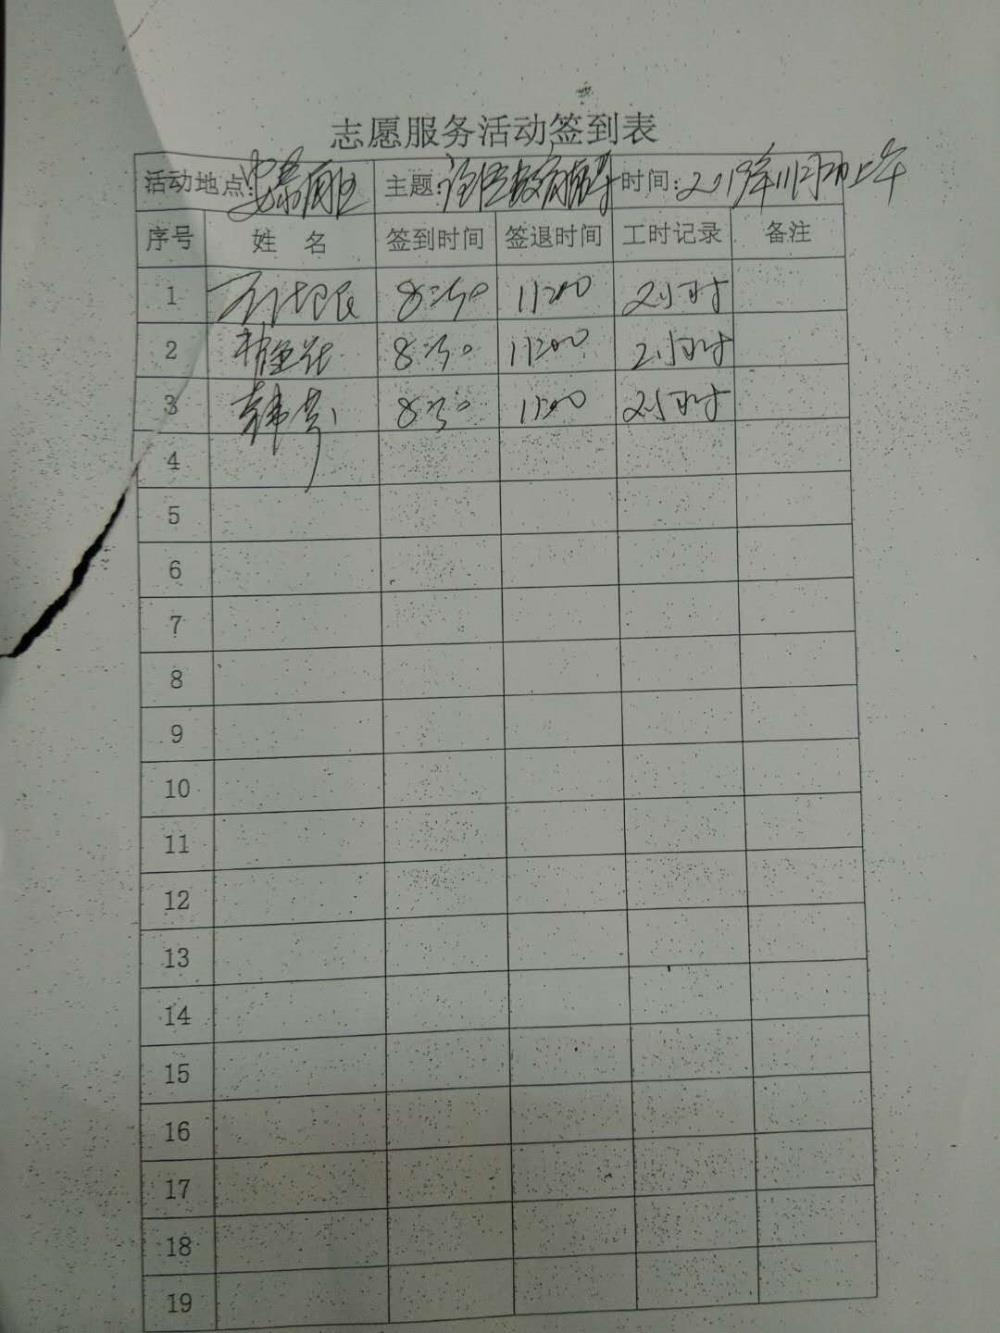 志愿服务活动签到表
活动地点: 主题: 时间:2019年11月20上午
序号 姓 名 签到时间 签退时间 工时记录 备注
1 8:30 11:00 2小时
2 8:30 11:00 2小时
3 韩 8:30 11:00 2小时
4
5
6
7
8
9
10
11
12
13
14
15
16
17
18
19